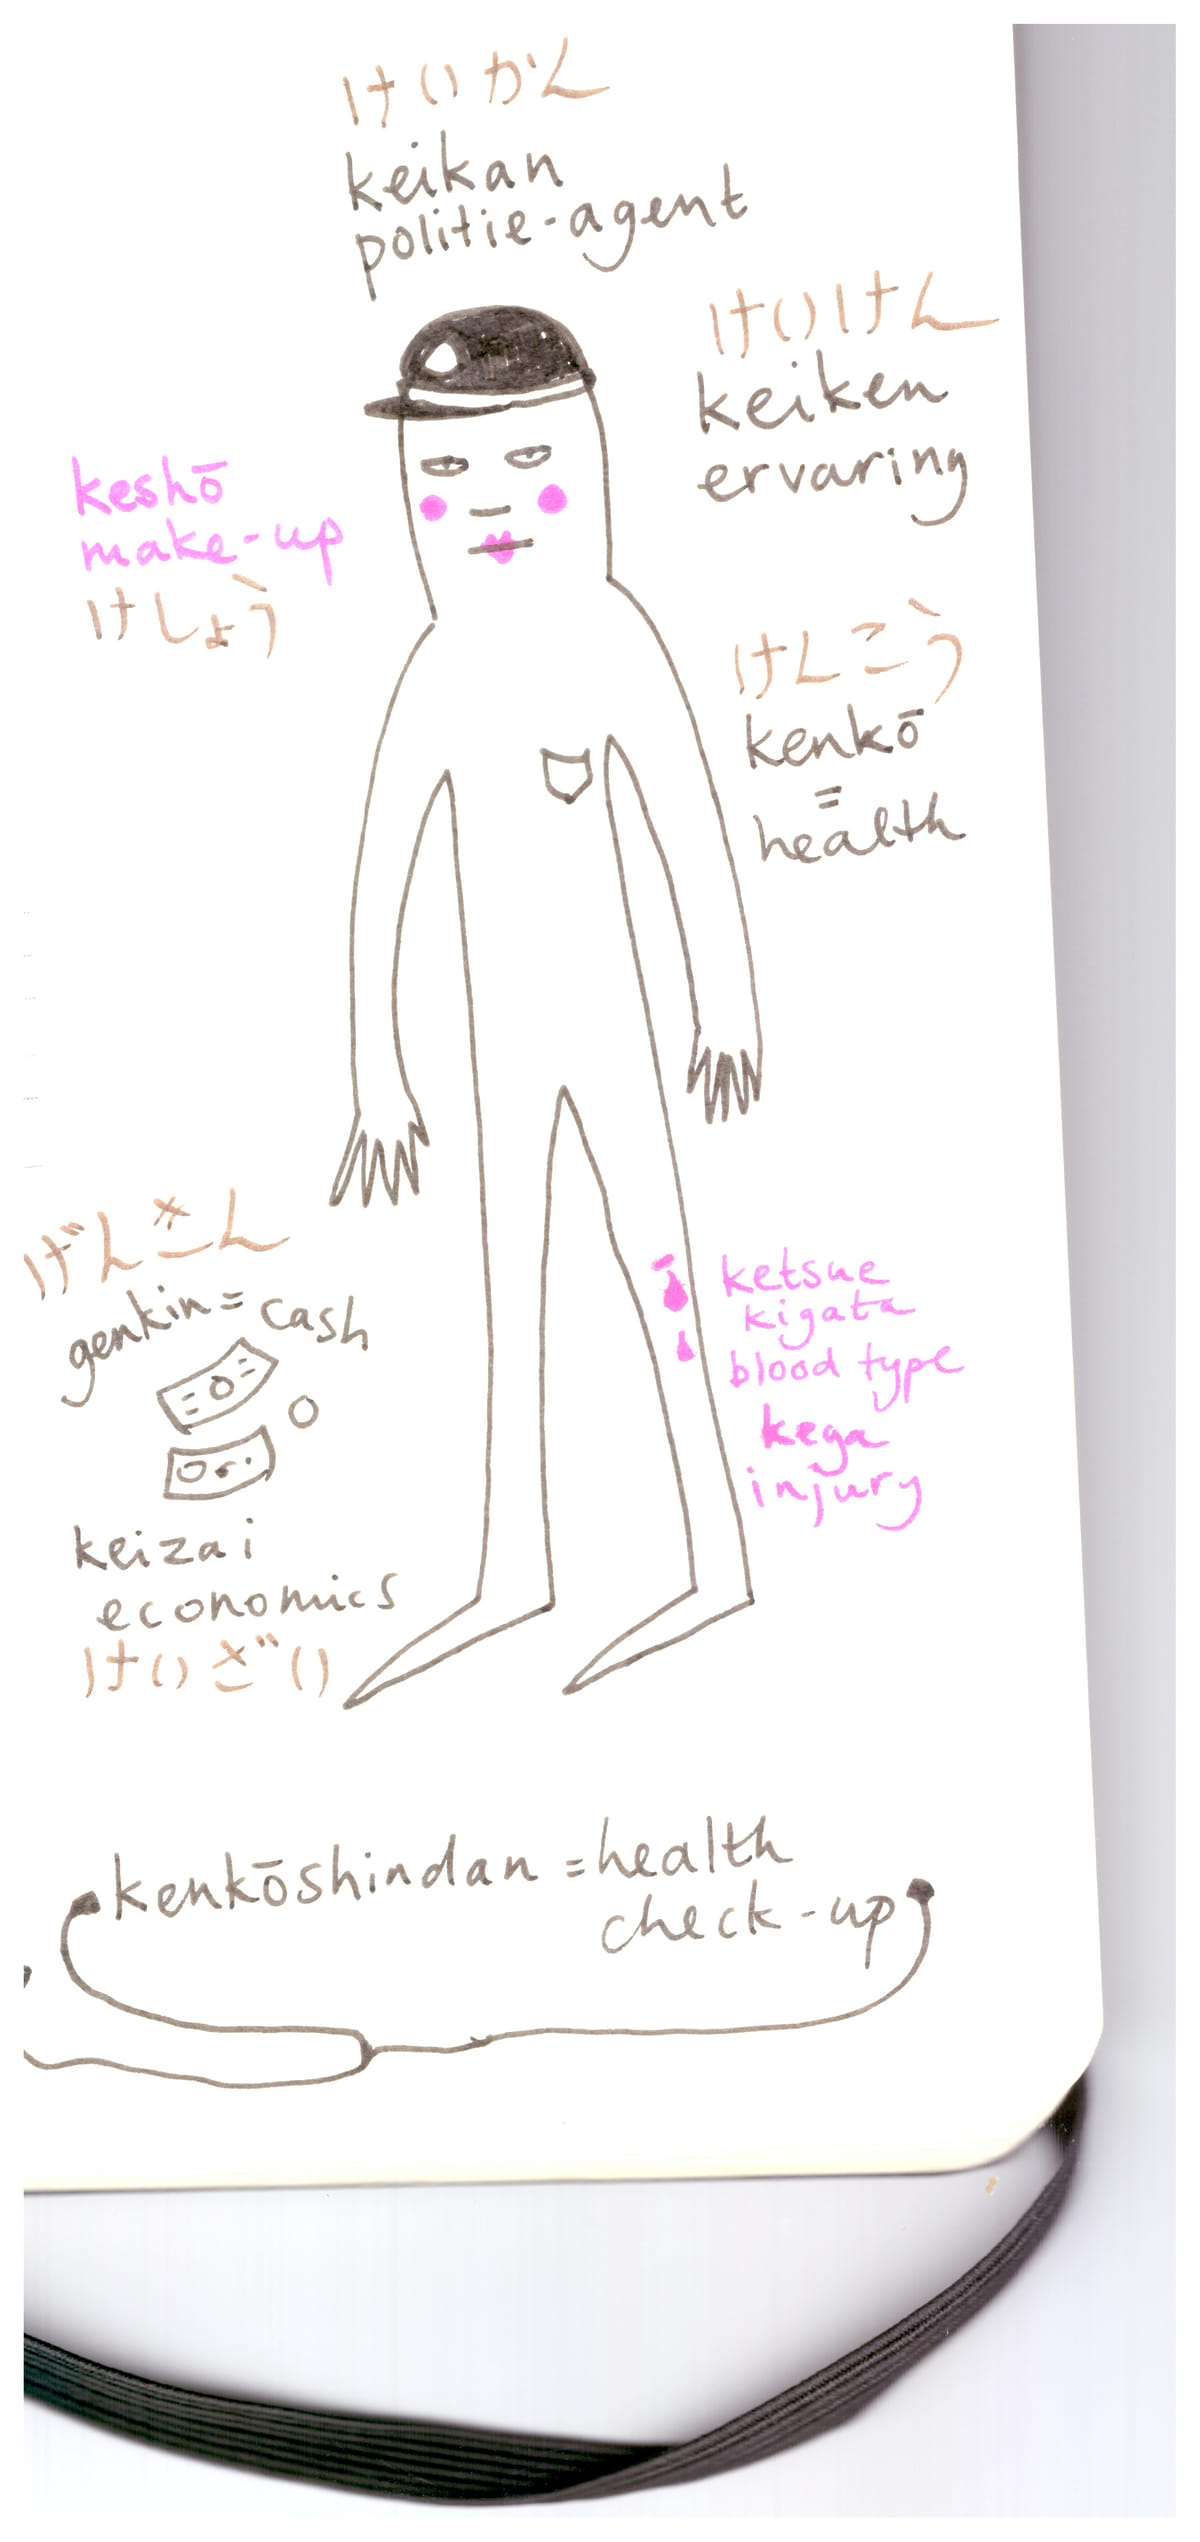 けいかん
keikan
politie-agent
けいけん
keiken
ervaring
keshō
make-up
けしょう
けんこう
kenkō
=
health
げんきん
genkin = cash
ketsue
kigata
blood type
kega
injury
keizai
economics
けいざい
kenkōshindan = health
check-up